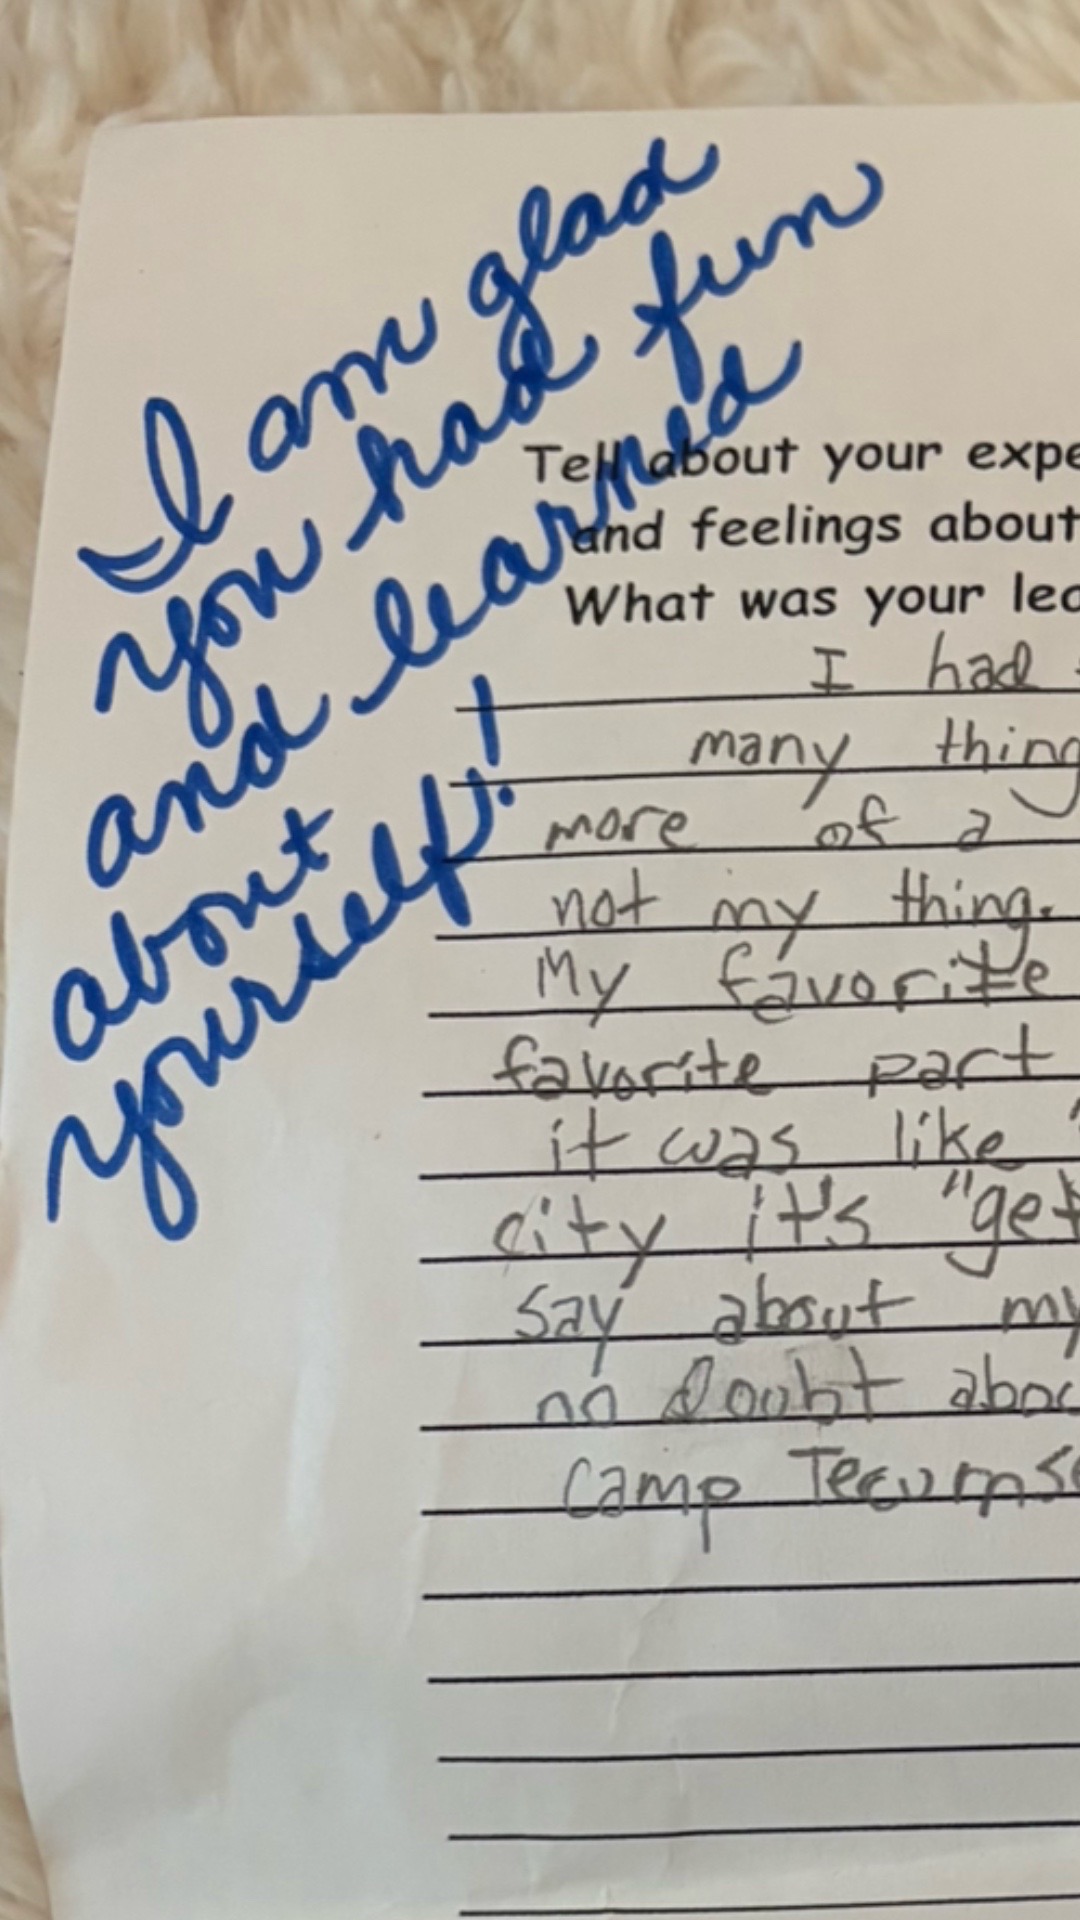 I am glad
you had fun
and learned
about
yourself!
Tell about your expe
and feelings about
What was your lea
I had
many thing
more of a
not my thing.
My favorite
favorite part
it was like "
city it's "get
say about my
no doubt abou
Camp Tecumse